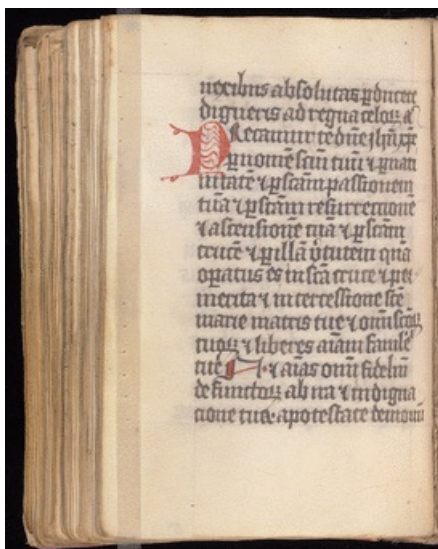 nexibus absolutas ꝑducere
digneris ad regna celoꝝ a
Precamur te dn̄e jhū xp̄e
ꝑ nomē scm̄ tuū ⁊ ꝑ nati
uitatē ⁊ ꝑ scām passionem
tuā ⁊ ꝑ scām resurrectionē
⁊ ascensionē tuā ⁊ ꝑ scām
crucē ⁊ ꝑ illā v̄tutem quā
oꝑatus es in scā cruce ⁊ per
merita ⁊ intercessione scē
marie matris tue ⁊ oīm scōꝝ
tuoꝝ ⁊ liberes aīam famlē
tue ⁊ aīas oīm fideliū
defunctoꝝ ab ira ⁊ indigna
cione tua. a potestate demonū